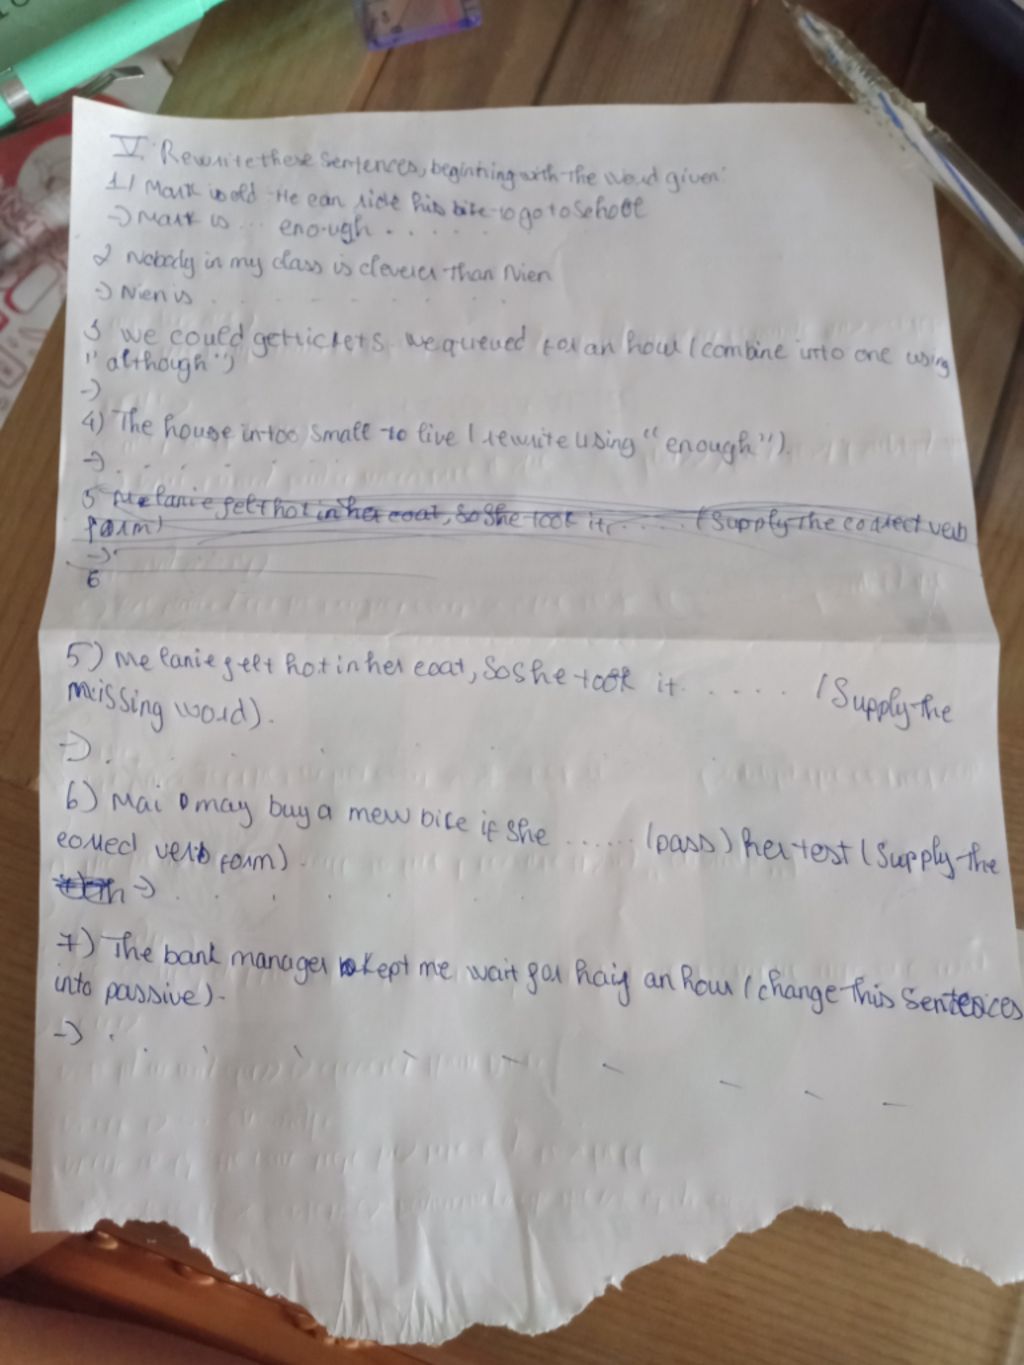 V. Rewrite these sentences, beginning with the word given:
1/ Mark is old. He can ride his bike to go to school
-> Mark is ... enough .....
2 Nobody in my class is cleverer than Nien
-> Nien is . . . . . . .
3 we could get tickets we queued for an hour (combine into one using
"although")
->
4) The house is too small to live (rewrite using "enough").
-> . . . . .
5 Melanie felt hot in her coat, so she took it, ..... (Supply the correct verb
form)
->
6
5) Melanie felt hot in her coat, so she took it ..... (Supply the
missing word).
-> . . . .
6) Mai may buy a new bike if she ...... (pass) her test (Supply the
correct verb form).
-> . . . . . .
7) The bank manager kept me wait for half an hour (change this sentences
into passive).
-> . . . . . . . . . .